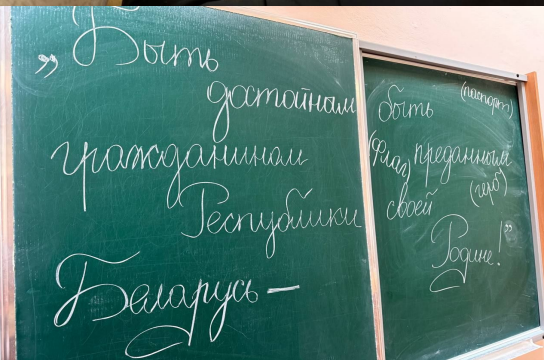 „Быть
достойным
гражданином
Республики
Беларусь –
быть (паспорт)
(флаг) преданным
своей (герб)
Родине!”